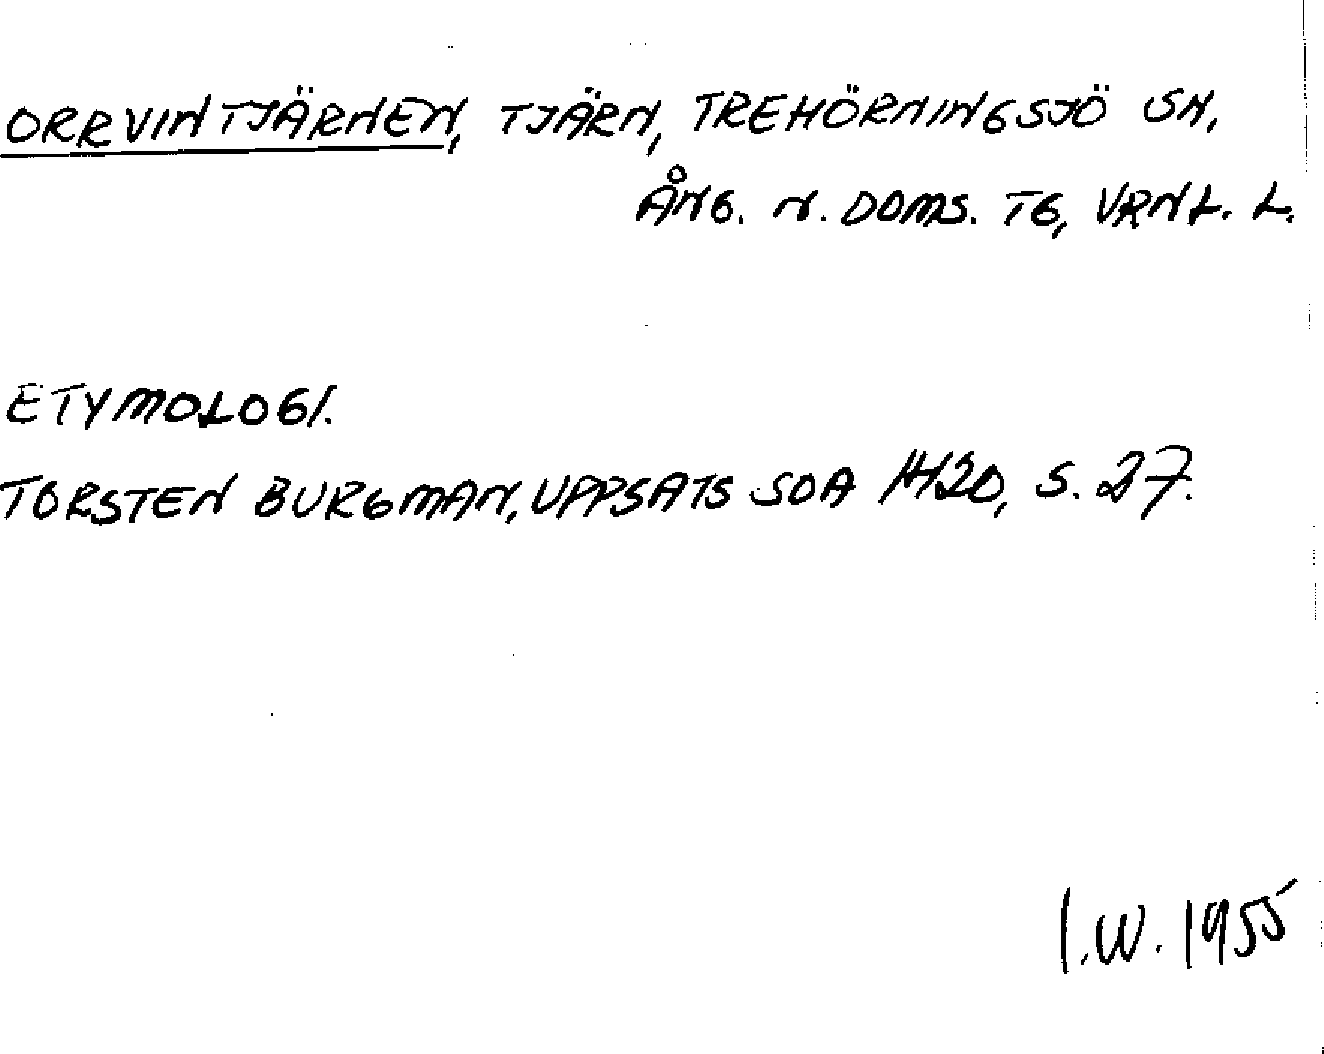 ORRVINTJÄRNEN, TJÄRN, TREHÖRNINGSJÖ SN,
ÅNG. N. DOMS. TG, VRNL. L.
ETYMOLOGI.
TORSTEN BURGMAN, UPPSATS SOA 1420, S. 27.
I.W. 1955